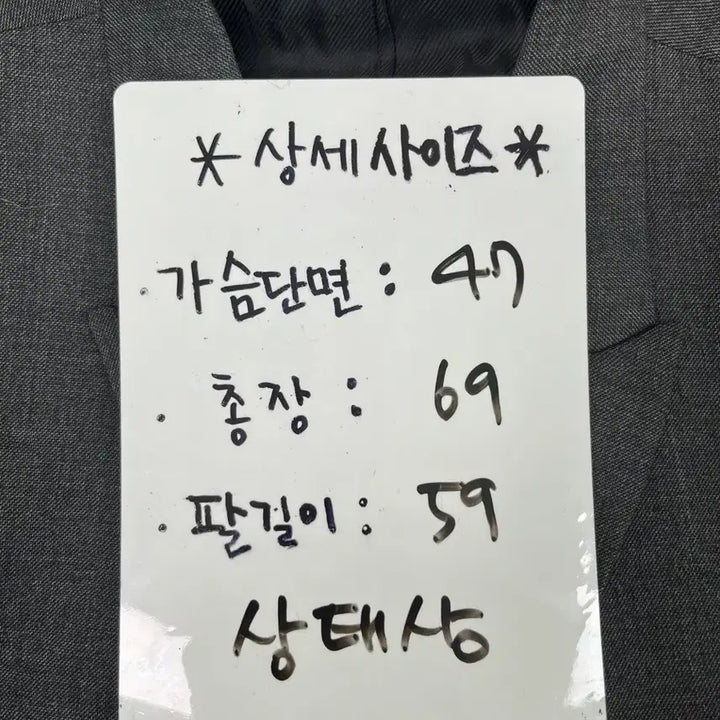 * 상세사이즈 *
· 가슴단면 : 47
· 총장 : 69
· 팔길이 : 59
상태상